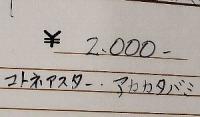 ¥ 2.000-
コトネアスター・アカカタバミ